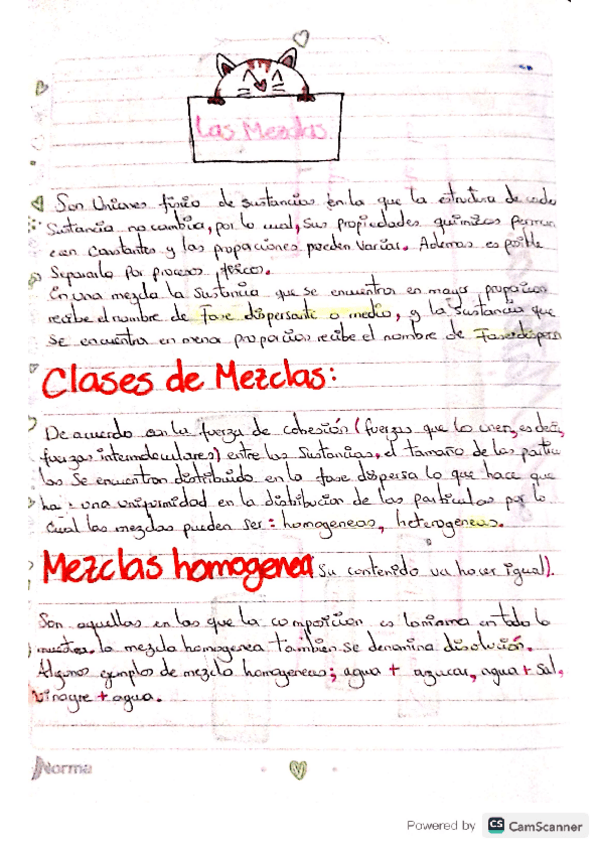 Las Mezclas.
Son Uniones fisico de sustancias en la que la estructura de cada
Sustancia no cambia, por lo cual, sus propiedades quimicas perman
ecen Constantes y las proporciones pueden Variar. Ademas es posible
Separarla Por procesos fisicos.
En una mezcla la Sustancia que se encuentra en mayor proporcion
recibe el nombre de Fase dispersante o medio, y la sustancia que
Se encuentra en menor proporcion recibe el nombre de Fase dispers
Clases de Mezclas:
De acuerdo con la fuerza de cohesión (fuerzas que lo unen, es decir,
fuerzas intermoleculares) entre las Sustancias, el tamaño de las particu
las Se encuentran distribuido en la fase dispersa lo que hace que
ha una uniformidad en la distribucion de las particulas por lo
Cual las mezclas pueden ser: homogeneas, heterogeneas.
Mezclas homogenea Su contenido va hacer igual).
Son aquellas en las que la composicion es la misma en todo lo
muestra. la mezcla homogenea tambien se denomina disolución.
Algunos ejemplos de mezcla homogeneas; agua + azucar, agua + Sal,
Vinagre + agua.
Norma
Powered by CS CamScanner